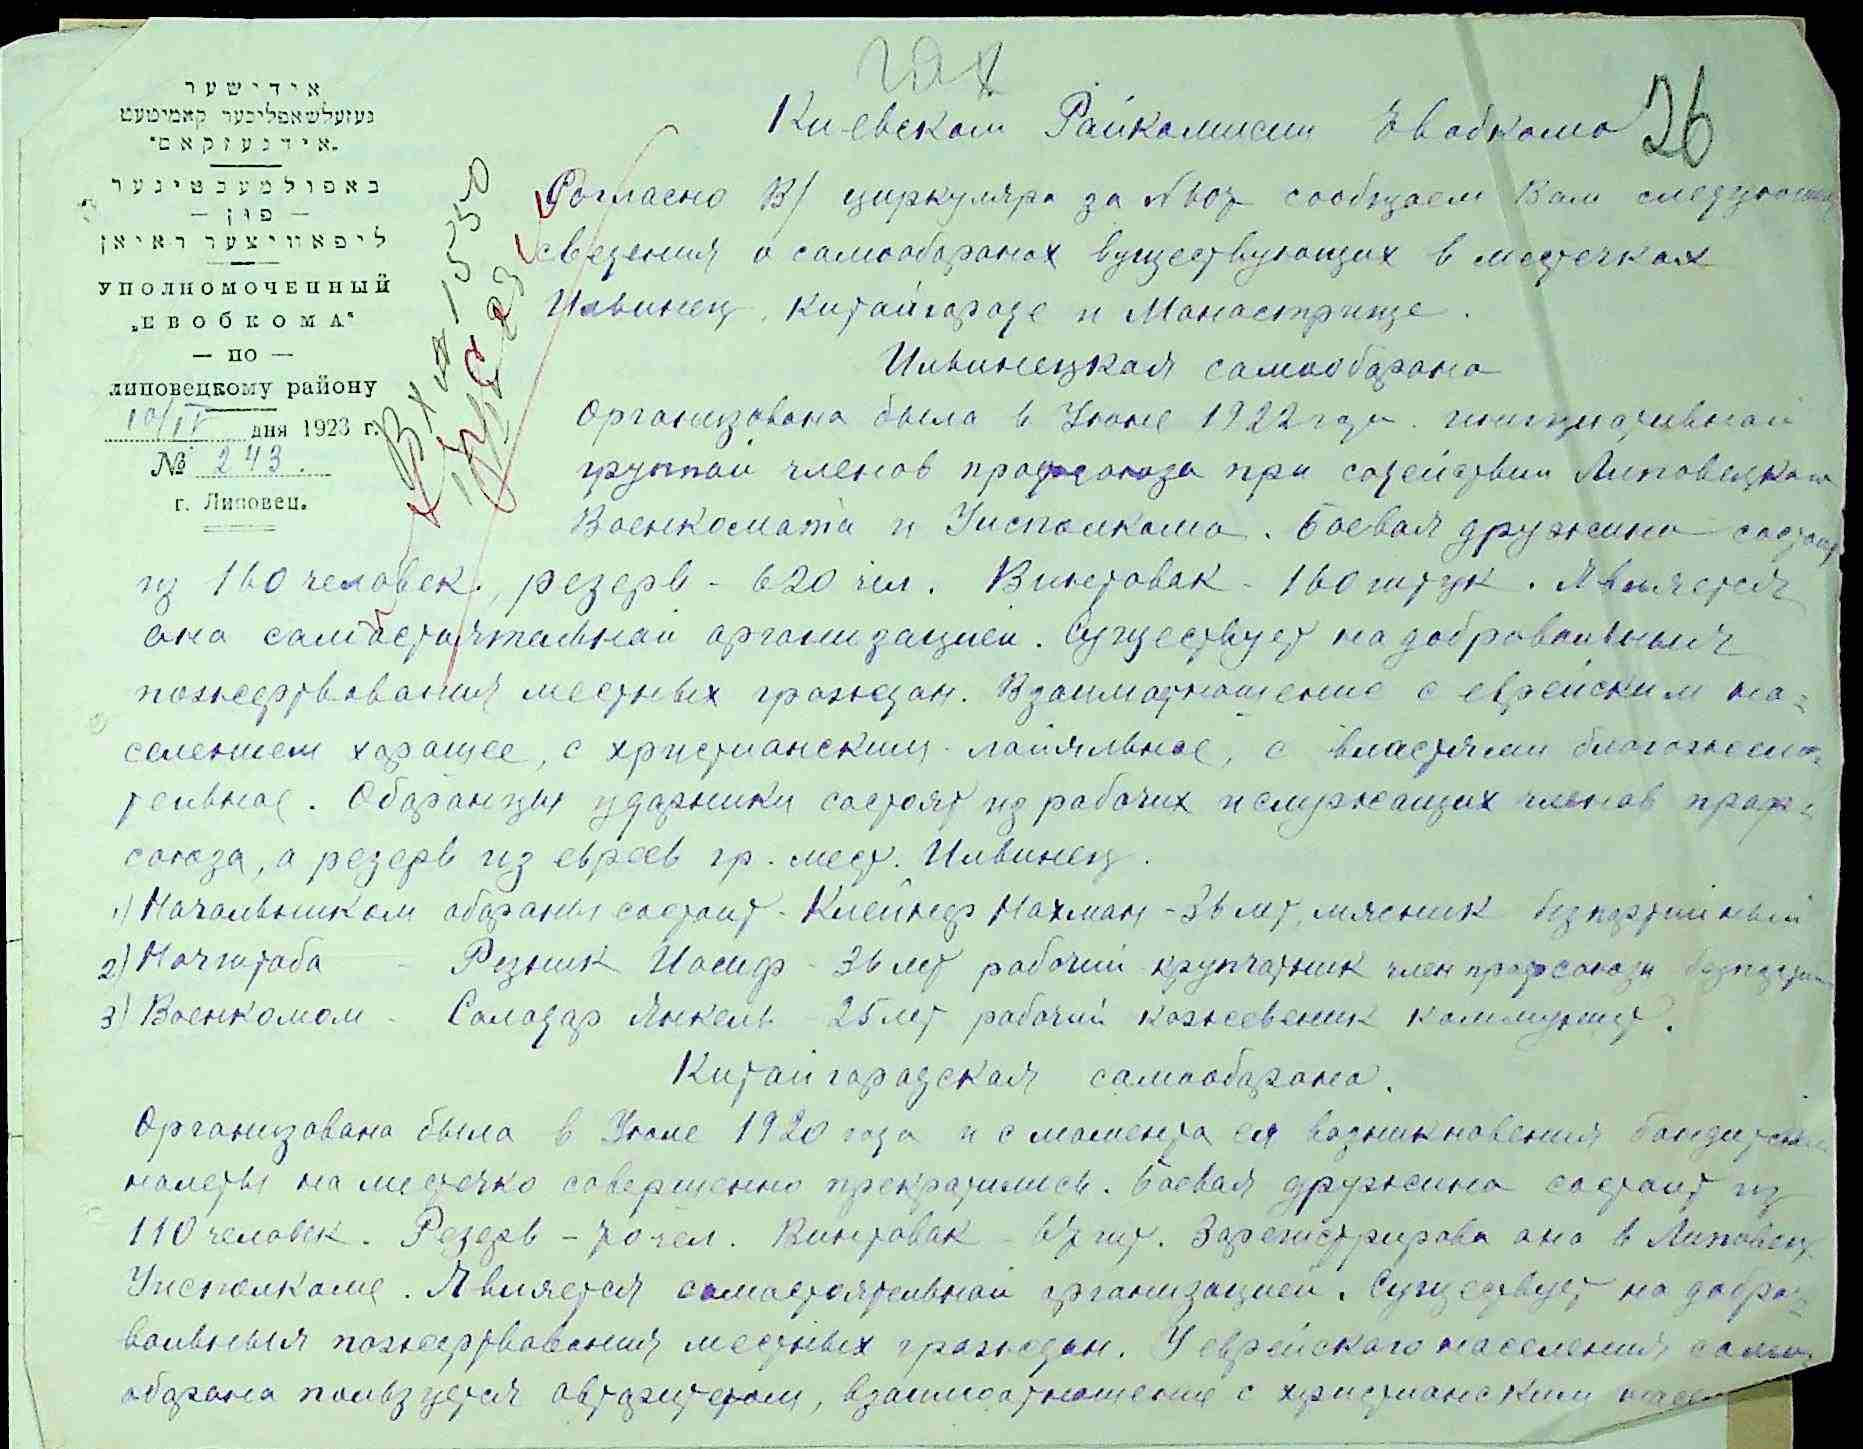 אידישער
געזעלשאפליכער קאמיטעט
"אידגעזקאם"
באפולמעכטיגער
— פון —
ליפאוויצער ראיאן
УПОЛНОМОЧЕННЫЙ
„ЕВОБКОМА"
— ПО —
липовецкому району
10/IV дня 1923 г.
№ 243.
г. Липовец.
26
Вх № 1550
Киевской Райкомисии Евобкома
Согласно В/ циркуляра за № 607 сообщаем Вам следующие
сведения о самооборонах существующих в местечках
Ильинец, Китайгороде и Монастрище.
Ильинецкая самооборона
Организована была в Июне 1922 года инициативной
группой членов профсоюза при содействии Липовецкого
Военкомата и Уисполкома. Боевая дружина состоит
из 160 человек, резерв - 620 чел. Винтовок - 160 штук. Является
она самостоятельной организацией. Существует на добровольныя
пожертвования местных граждан. Взаимотношение с еврейским на=
селением хорошее, с християнским - лояльное, с властями благожела=
тельное. Оборонцы ударники состоят из рабочих и служащих членов проф=
союза, а резерв из евреев гр. мест. Ильинец.
1) Начальником обороны состоит - Клейнер Нахман - 36 лет, мясник безпартийный
2) Начштаба - Резник Иосиф - 36 лет рабочий крупчатник член профсоюза
3) Военкомом - Солодар Янкель 25 лет рабочий кожевеник коммунист.
Китайгородская самооборона.
Организована была в Июле 1920 года и с момента ея возникновения бандитские
налеты на местечко совершенно прекратились. Боевая дружина состоит из
110 человек. Резерв - 70 чел. Винтовок - 67 шт. Зарегистрирова она в Липовец
Уисполкоме. Является самостоятельной организацией. Существует на добро=
вольныя пожертвования местных граждан. У еврейского населения само
оборона пользуется авторитетом, взаимоотношение с християнским насел